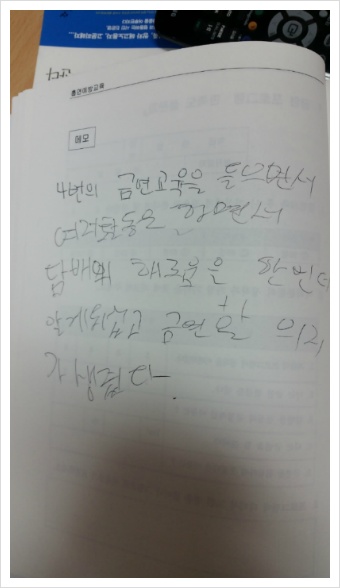 흡연예방교육
메모
4번의 금연교육을 들으면서
여러활동은 하면서
담배의 해로움을 한번더
알게되섭고 금연할 의지
가 생겼다.